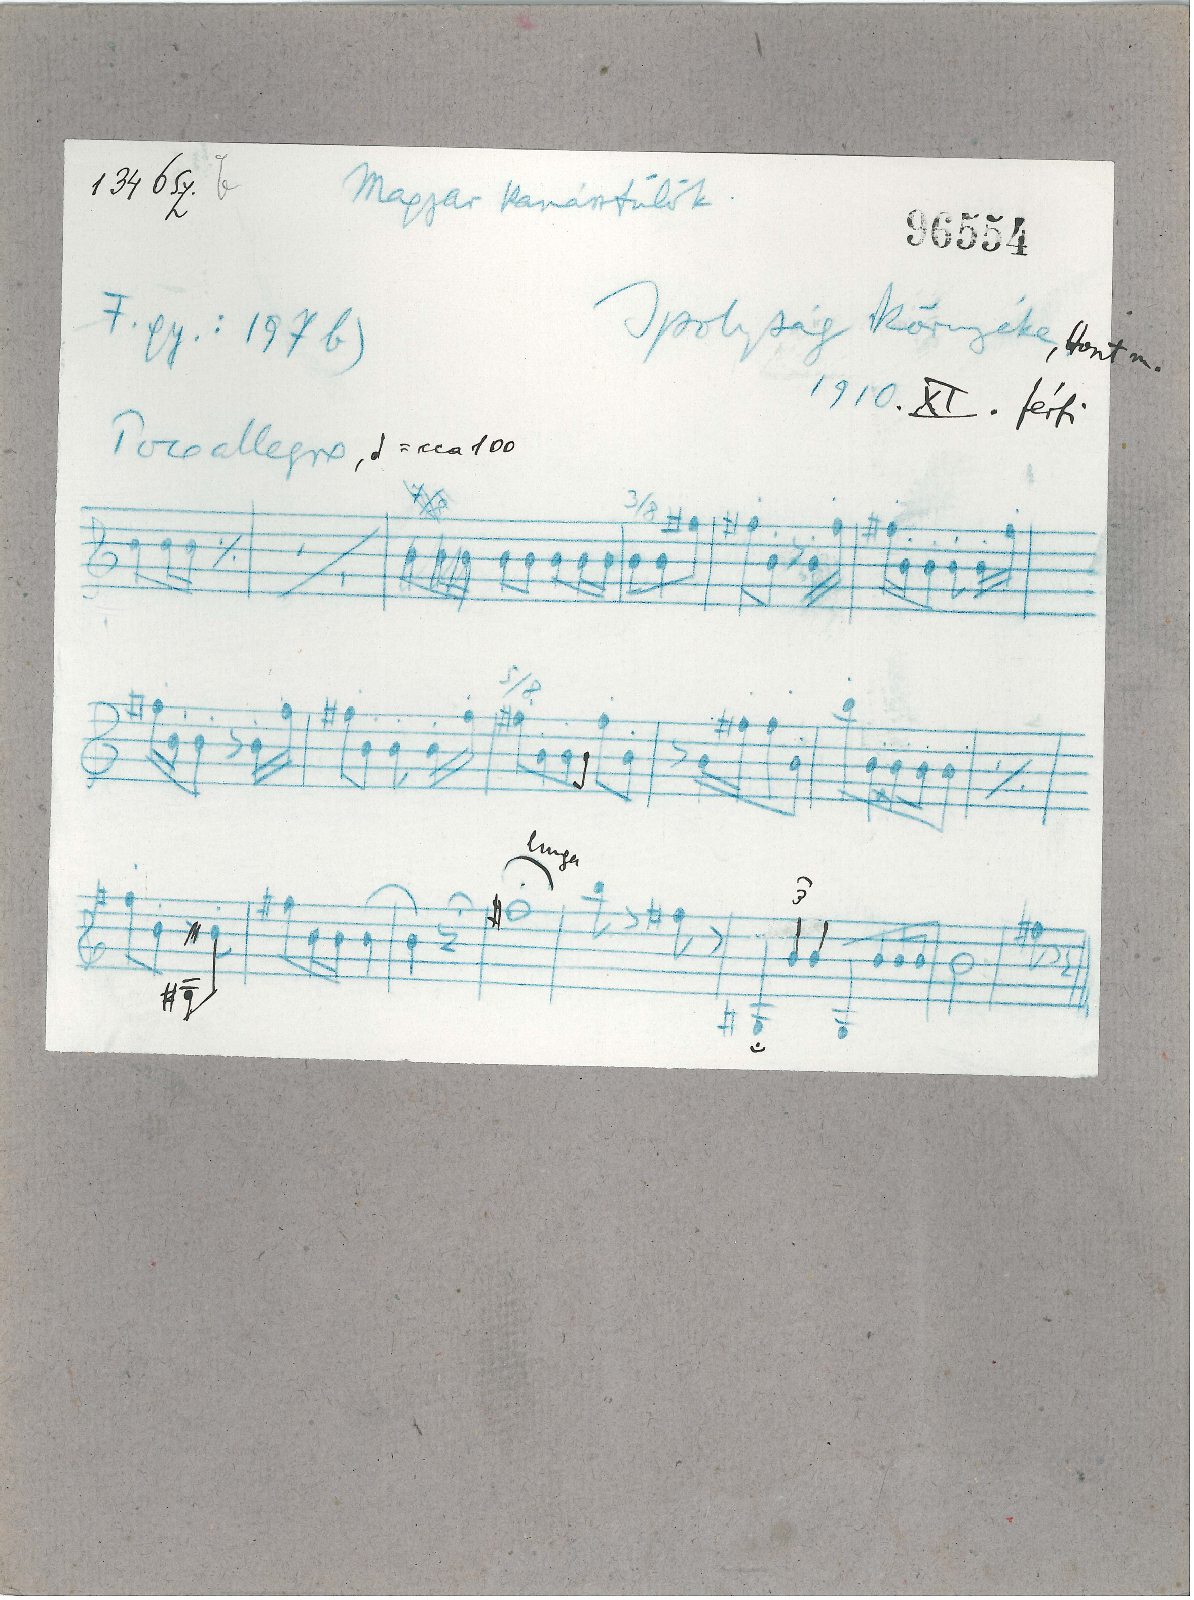 1346 b
Magyar kanásztülök.
96554
F. gy.: 197 b)
Ipolyság környéke, Hont m.
1910. XI. férfi
Poco allegro, = cca 100
7/8
3/8
5/8
lunga
3